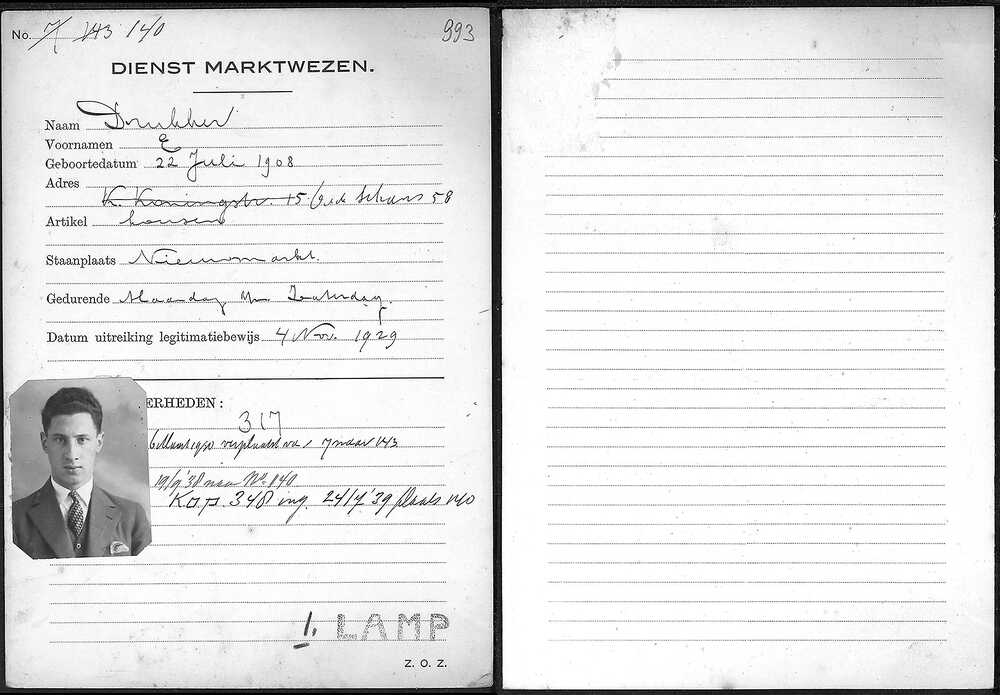 No. 7 143 140 993
DIENST MARKTWEZEN.
Naam Drukker
Voornamen E
Geboortedatum 22 Juli 1908
Adres
K. Koningstr. 15 Oude Schans 58
Artikel kousen
Staanplaats Nieuwmarkt.
Gedurende Maandag t/m Zaterdag.
Datum uitreiking legitimatiebewijs 4 Nov. 1929
ERHEDEN:
317
6 Maart 1930 verplaatst v. 7 naar 143
19/9 '38 naar No. 140
K.o.p. 348 ing. 24/4 '39 plaats 140
1. LAMP
Z. O. Z.